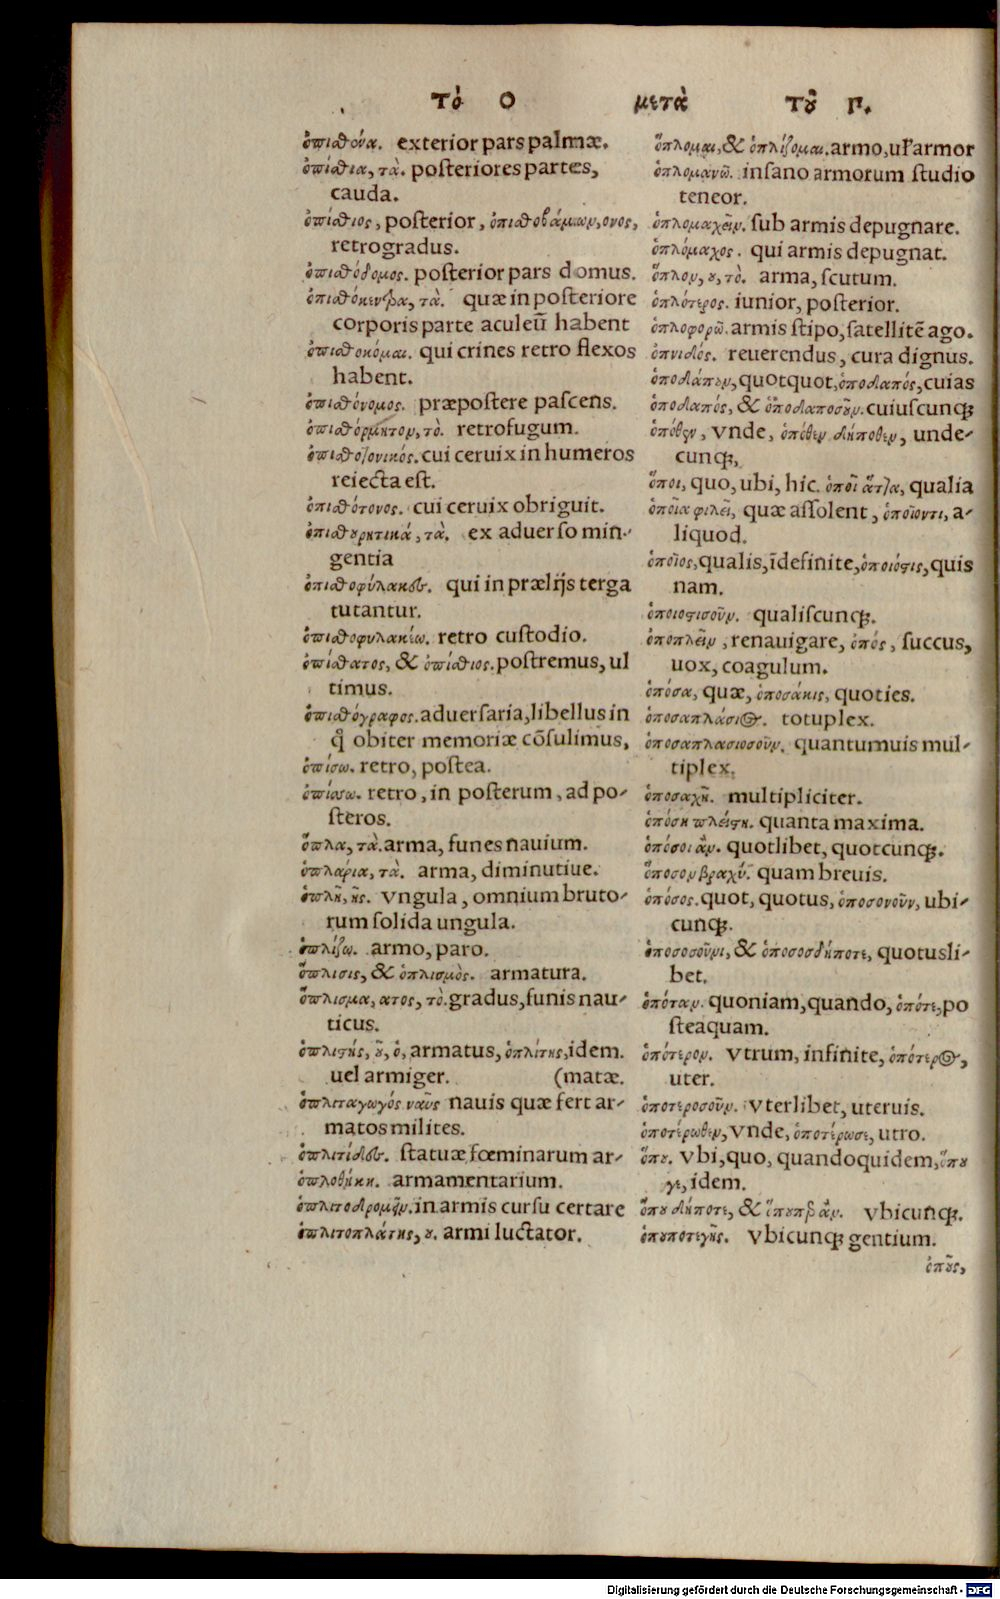 τὸ Ο μετὰ τοῦ Π.
ὀπιςθένα. exterior pars palmæ.
ὀπίσθια, τὰ. posteriores partes,
cauda.
ὀπίσθιος, posterior, ὀπισθοβάμων, ονος,
retrogradus.
ὀπισθόδομος. posterior pars domus.
ὀπισθόκεντρα, τὰ. quæ in posteriore
corporis parte aculeũ habent
ὀπισθοκόμαι. qui crines retro flexos
habent.
ὀπισθόνομος. præpostere pascens.
ὀπισθόρμητον, τὸ. retrofugum.
ὀπισθοτονικός. cui ceruix in humeros
reiecta est.
ὀπισθότονος. cui ceruix obriguit.
ὀπισθουρητικά, τὰ. ex aduerso min-
gentia
ὀπισθοφύλακες. qui in prælijs terga
tutantur.
ὀπισθοφυλακέω. retro custodio.
ὀπίσθατος, & ὀπίσθιος. postremus, ul
timus.
ὀπισθόγραφος. aduersaria, libellus in
q̃ obiter memoriæ cõsulimus,
ὀπίσω. retro, postea.
ὀπίσσω. retro, in posterum, ad po-
steros.
ὅπλα, τὰ. arma, funes nauium.
ὁπλάρια, τὰ. arma, diminutiue.
ὁπλὴ, ῆς. vngula, omnium bruto-
rum solida ungula.
ὁπλίζω. armo, paro.
ὅπλισις, & ὁπλισμὸς. armatura.
ὅπλισμα, ατος, τὸ. gradus, funis nau-
ticus.
ὁπλιστής, οῦ, ὁ, armatus, ὁπλίτης, idem.
uel armiger. (matæ.
ὁπλιταγωγός ναῦς nauis quæ fert ar-
matos milites.
ὁπλιτίδες. statuæ fœminarum ar-
ὁπλοθήκη. armamentarium.
ὁπλιτοδρομεῖν. in armis cursu certare
ὁπλιτοπλάτης, ου. armi luctator.
ὅπλομαι, & ὁπλίζομαι. armo, uł armor
ὁπλομανῶ. insano armorum studio
teneor.
ὁπλομαχεῖν. sub armis depugnare.
ὁπλόμαχος. qui armis depugnat.
ὅπλον, ου, τὸ. arma, scutum.
ὁπλότερος. iunior, posterior.
ὁπλοφορῶ. armis stipo, satellitẽ ago.
ὀπνιδός. reuerendus, cura dignus.
ὁποδάπουν, quotquot, ὁποδαπός, cuias
ὁποδαπός, & ὁποδαποσοῦν. cuiuscunqꝫ
ὁπόθεν, vnde, ὁπόθεν δήποθεν, unde-
cunqꝫ,
ὅποι, quo, ubi, hic. ὁποῖ ἄττα, qualia
ὁποῖα φιλεῖ, quæ assolent, ὁποῖοντι, a-
liquod.
ὁποῖος, qualis, ĩdefinite, ὁποιόστις, quis
nam.
ὁποιοστισοῦν. qualiscunqꝫ.
ὁποπλεῖν, renauigare, ὀπός, succus,
uox, coagulum.
ὁπόσα, quæ, ὁποσάκις, quoties.
ὁποσαπλάσιος. totuplex.
ὁποσαπλασιοσοῦν. quantumuis mul-
tiplex.
ὁποσαχῆ. multipliciter.
ὁπόση πλείστη. quanta maxima.
ὁπόσοι ἂν. quotlibet, quotcunqꝫ.
ὅποσον βραχύ. quam breuis.
ὁπόσος. quot, quotus, ὁποσονοῦν, ubi-
cunqꝫ.
ὁποσοσοῦνι, & ὁποσοσδήποτε, quotusli-
bet.
ὁπόταν. quoniam, quando, ὁπότε, po
steaquam.
ὁπότερον. vtrum, infinite, ὁπότερος,
uter.
ὁποτεροσοῦν. vterlibet, uteruis.
ὁποτέρωθεν, vnde, ὁποτέρωσε, utro.
ὅπου. vbi, quo, quandoquidem, ὅπου
γε, idem.
ὅπου δήποτε, & ὅπουπερ ἂν. vbicunqꝫ.
ὁπουποτεγῆς. vbicunqꝫ gentium.
ὀποῦς,
Digitalisierung gefördert durch die Deutsche Forschungsgemeinschaft - DFG